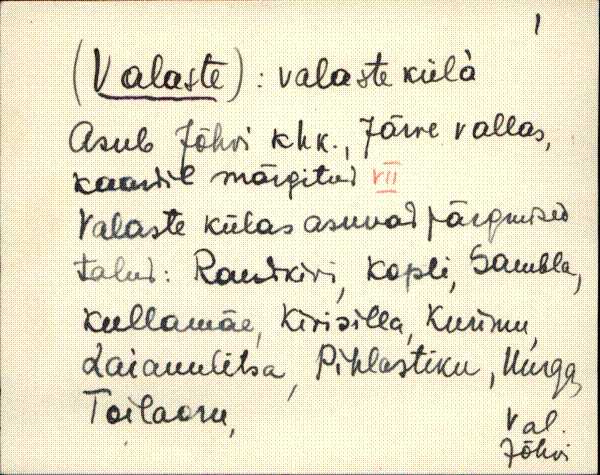 1
(Valaste): valaste külä
Asub Jõhvi khk., Järve vallas,
kaardil märgitud VII
Valaste külas asuvad järgmised
talud: Randkivi, Kopli, Sambla,
Kullamäe, Kirisilla, Kurimu,
Laiaunulitsa, Pihlastiku, Nurga,
Toilaoru,
Val.
Jõhvi